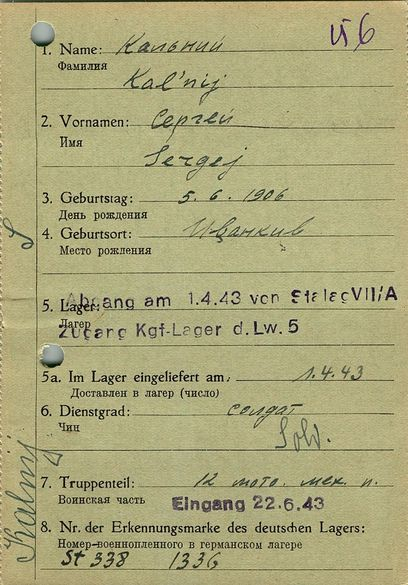 И6
1. Name: Кальний
Фамилия
Kal'nij
2. Vornamen: Сергей
Имя
Sergej
3. Geburtstag: 5. 6. 1906
День рождения
4. Geburtsort: Иванкив
Место рождения
5. Lager: Abgang am 1.4.43 von Stalag VII/A
Лагерь
Zugang Kgf-Lager d. Lw. 5
5a. Im Lager eingeliefert am: 1.4.43
Доставлен в лагерь (число)
6. Dienstgrad: солдат
Чин
Sold.
7. Truppenteil: 12 мото. мех. п.
Воинская часть
Eingang 22.6.43
8. Nr. der Erkennungsmarke des deutschen Lagers:
Номер военнопленного в германском лагере
St 338 1336
Kalnij S